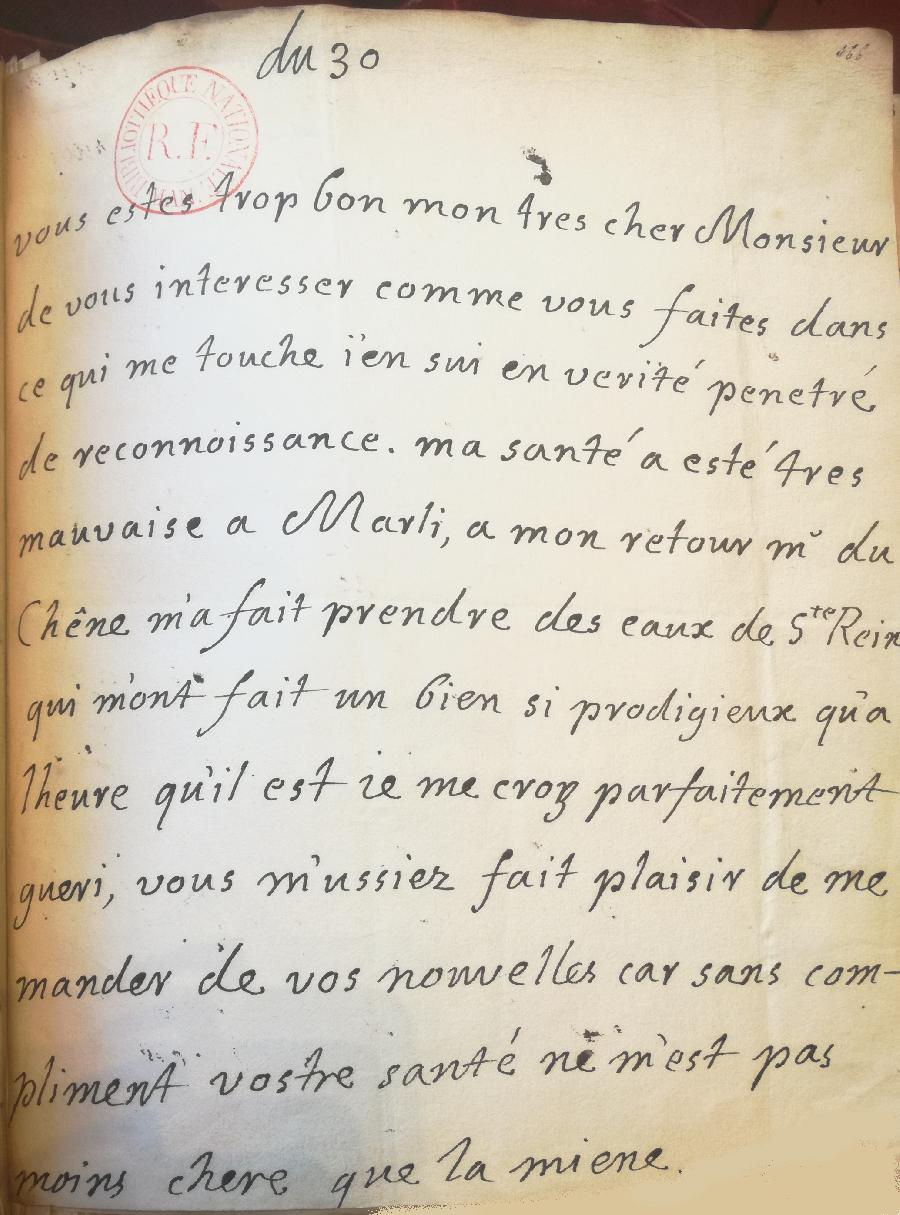 du 30
466
BIBLIOTHEQUE NATIONALE
R.F.
vous estes trop bon mon tres cher Monsieur
de vous interesser comme vous faites dans
ce qui me touche i'en sui en verité penetré
de reconnoissance. ma santé a esté tres
mauvaise a Marli, a mon retour mr du
Chêne m'a fait prendre des eaux de Ste Rein
qui m'ont fait un bien si prodigieux qu'a
l'heure qu'il est ie me croy parfaitement
gueri, vous m'ussiez fait plaisir de me
mander de vos nouvelles car sans com-
pliment vostre santé ne m'est pas
moins chere que la miene.